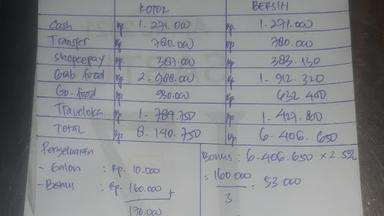 KOTOR BERSIH
Cash Rp 1.271.000 Rp 1.271.000
Transfer Rp 780.000 Rp 780.000
shopeepay Rp 387.000 Rp 383.130
Grab food Rp 2.988.000 Rp 1.912.320
Go.food Rp 930.000 Rp 632.400
Traveloka Rp 1.784.750 Rp 1.427.800
TOTAL Rp 8.140.750 Rp 6.406.650
Pengeluaran
- Galon : Rp. 10.000
- Bonus : Rp. 160.000 +
170.000
Bonus : 6.406.650 × 2.5%
= 160.000 : 53.000
3